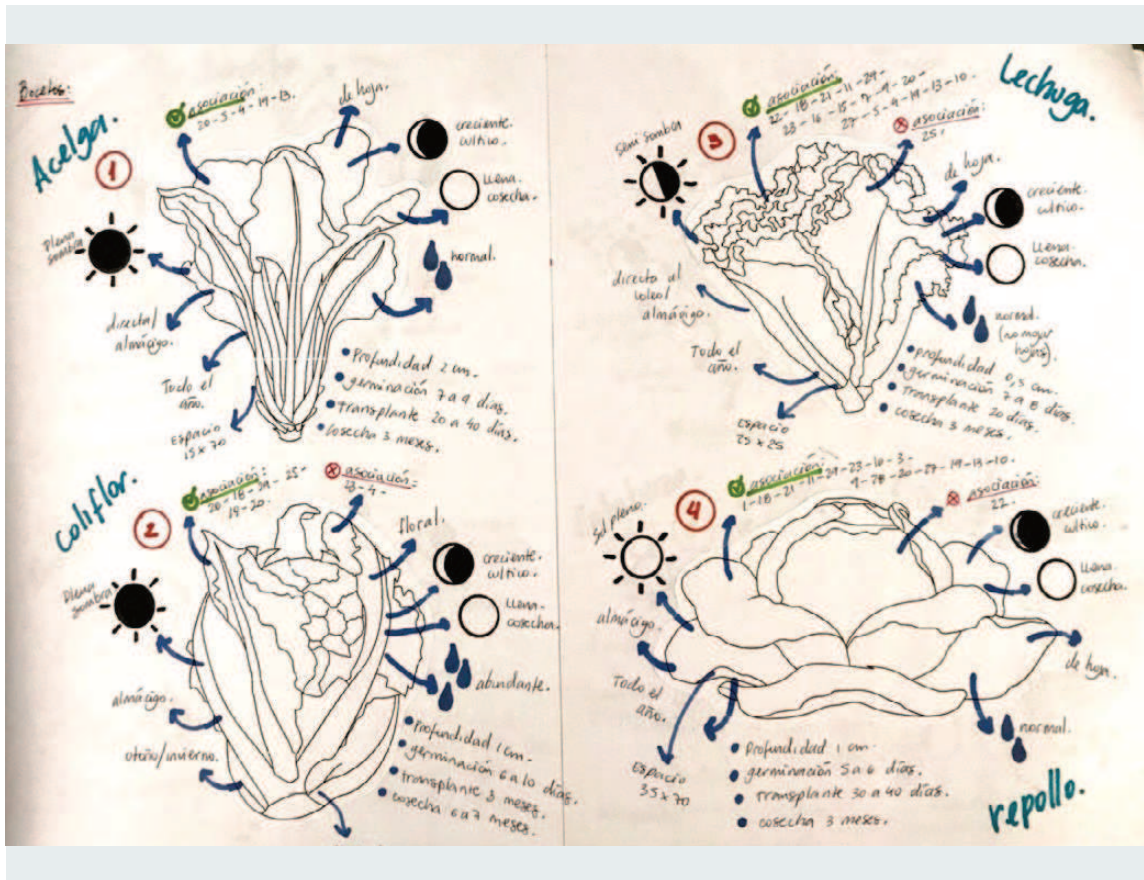 Bocetos:
Acelga.
1
asociación:
20-5-4-19-13.
de hoja.
creciente.
cultico.
llena.
cosecha.
normal.
plena
sombra
directa/
almácigo.
Todo el
año.
Espacio
15x70
Profundidad 2 cm.
germinación 7 a 9 días.
transplante 20 a 40 días.
cosecha 3 meses.
Coliflor.
2
asociación:
asociación:
floral.
creciente.
cultico.
llena.
cosecha.
abundante.
plena
sombra
almácigo.
otoño/invierno.
Profundidad 1 cm.
germinación 6 a 10 días.
transplante 3 meses.
cosecha 6 a 7 meses.
Lechuga.
3
asociación:
22-18-21-11-29-
23-16-15-7-9-20-
27-5-4-19-13-10.
asociación:
25.
semi sombra
de hoja.
creciente.
cultico.
llena.
cosecha.
normal.
(no mojar
hojas)
directo al
almácigo.
Todo el
año.
Espacio
25x25
profundidad 0,5 cm.
germinación 7 a 8 días.
transplante 20 días.
cosecha 3 meses.
4
asociación:
1-28-21-11-29-23-16-3-
9-28-20-27-19-13-10.
asociación:
22.
sol pleno.
creciente.
cultico.
llena.
cosecha.
de hoja.
normal.
almácigo.
Todo el
año.
Espacio
35x70
Profundidad 1 cm.
germinación 5 a 6 días.
transplante 30 a 40 días.
cosecha 3 meses.
repollo.